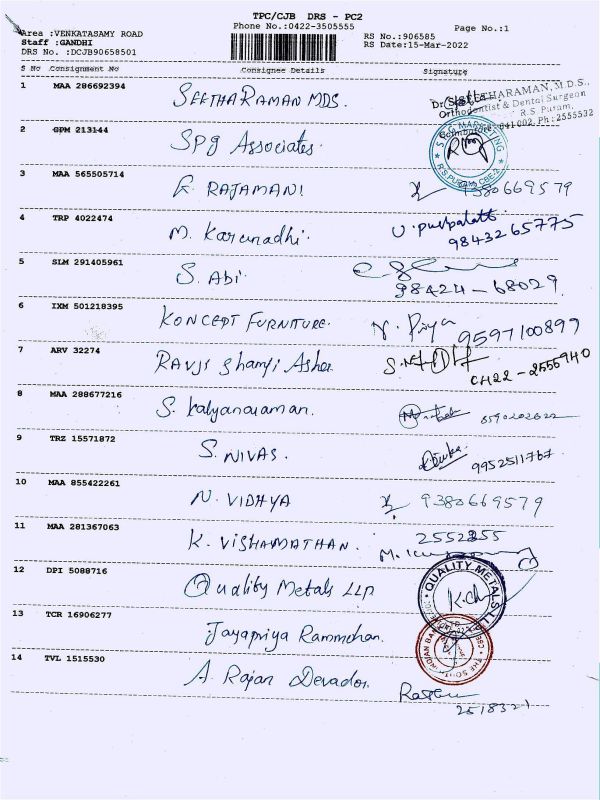 TPC/CJB DRS - PC2
Phone No.:0422-3505555 Page No.:1
Area :VENKATASAMY ROAD
Staff :GANDHI RS No.:906585
DRS No. :DCJB90658501 RS Date:15-Mar-2022
S No Consignment No Consignee Details Signature
1 MAA 286692394 SEETHARAMAN MDS.
Dr. SEETHARAMAN, M.D.S.,
Orthodontist & Dental Surgeon
R.S. Puram,
Coimbatore - 641002. Ph: 2555532
2 GPM 213144 SPG Associates.
MARKETING
R.S. PURAM CBE-2
3 MAA 565505714 G. RAJAMANI 9380669579
4 TRP 4022474 M. Karunadhi. 9843265775
5 SLM 291405961 S. Abi. 98424-68029
6 IXM 501218395 KONCEPT FURNITURE. V. Priya 9597100899
7 ARV 32274 Ravji Shamji Asher
0422-2555940
8 MAA 288677216 S. Kalyanaraman.
9 TRZ 15571872 S. NIVAS. 9952511767
10 MAA 855422261 N. VIDHYA 9380669579
11 MAA 281367063 K. VISHAMATHAN.
12 DPI 5088716 Quality Metals LLP
QUALITY METALS LLP
13 TCR 16906277 Jayapriya Rammohan.
14 TVL 1515530 A. Rajan Devador.
2518321